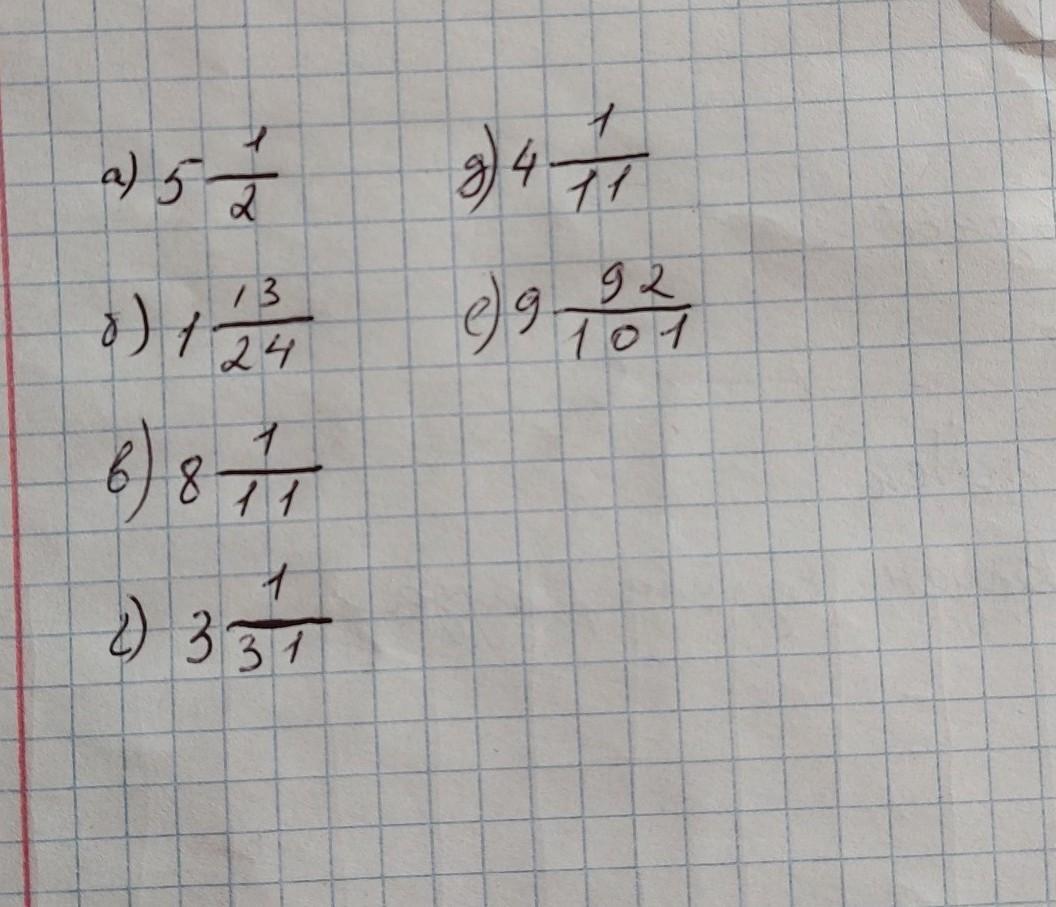 а) 5 1/2
б) 1 13/24
в) 8 1/11
г) 3 1/31
д) 4 1/11
е) 9 92/101